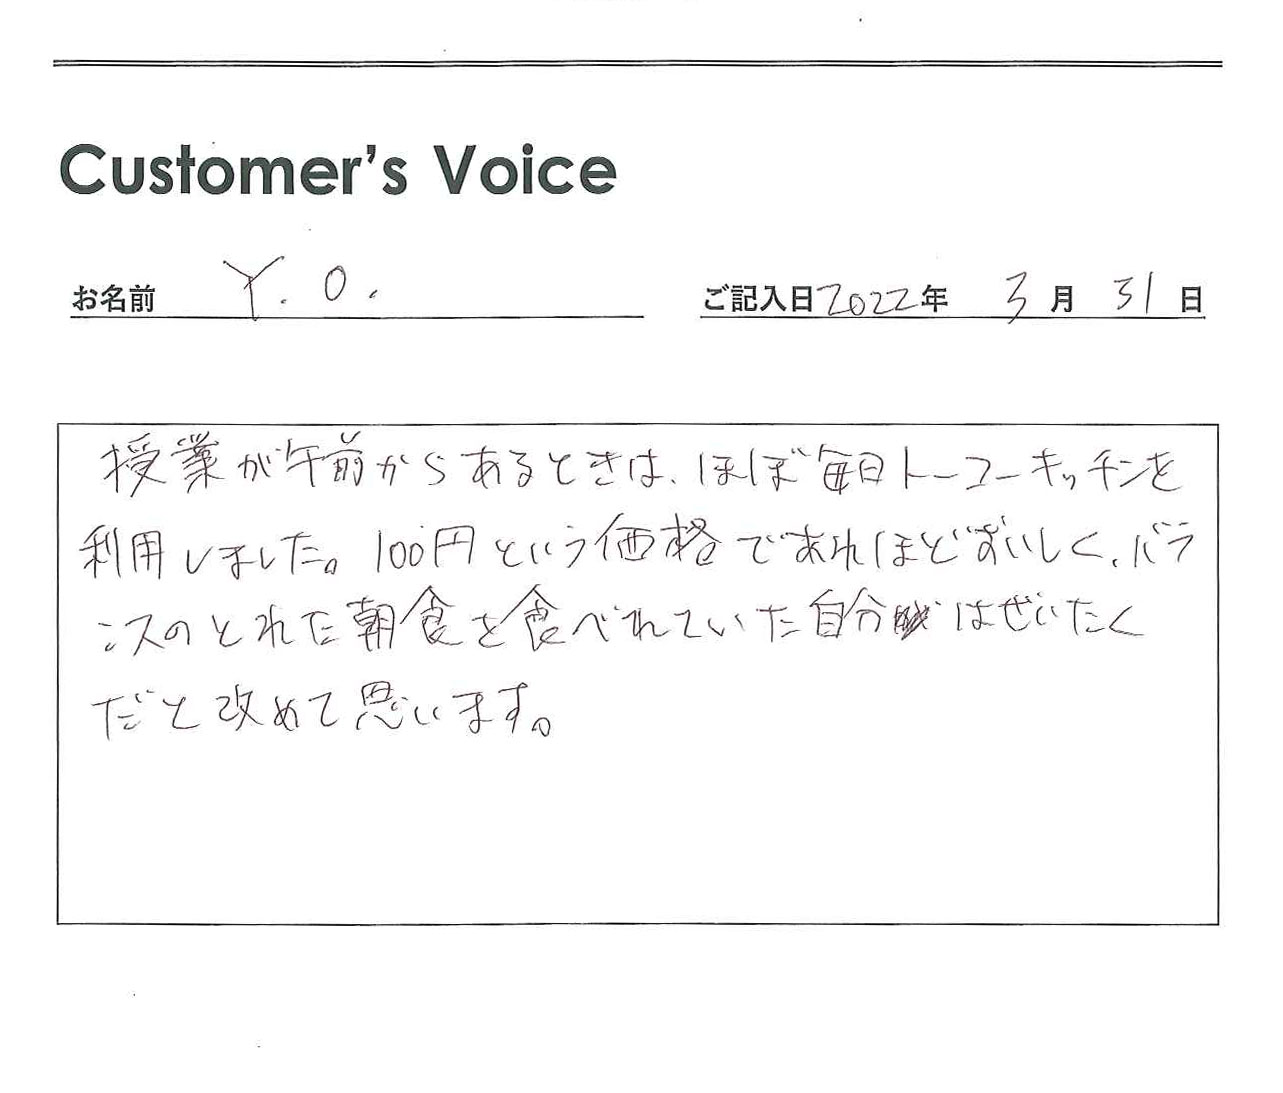 Customer's Voice
お名前 Y. O.
ご記入日2022年 3月 31日
授業が午前からあるときは、ほぼ毎日トーコーキッチンを
利用しました。100円という価格であれほどおいしく、バラ
ンスのとれた朝食を食べれていた自分はぜいたく
だと改めて思います。